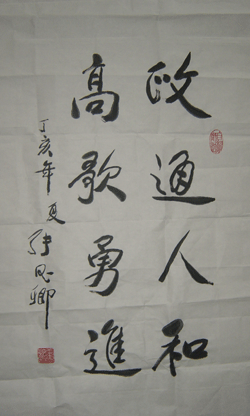 政通人和
高歌勇進
丁亥年夏